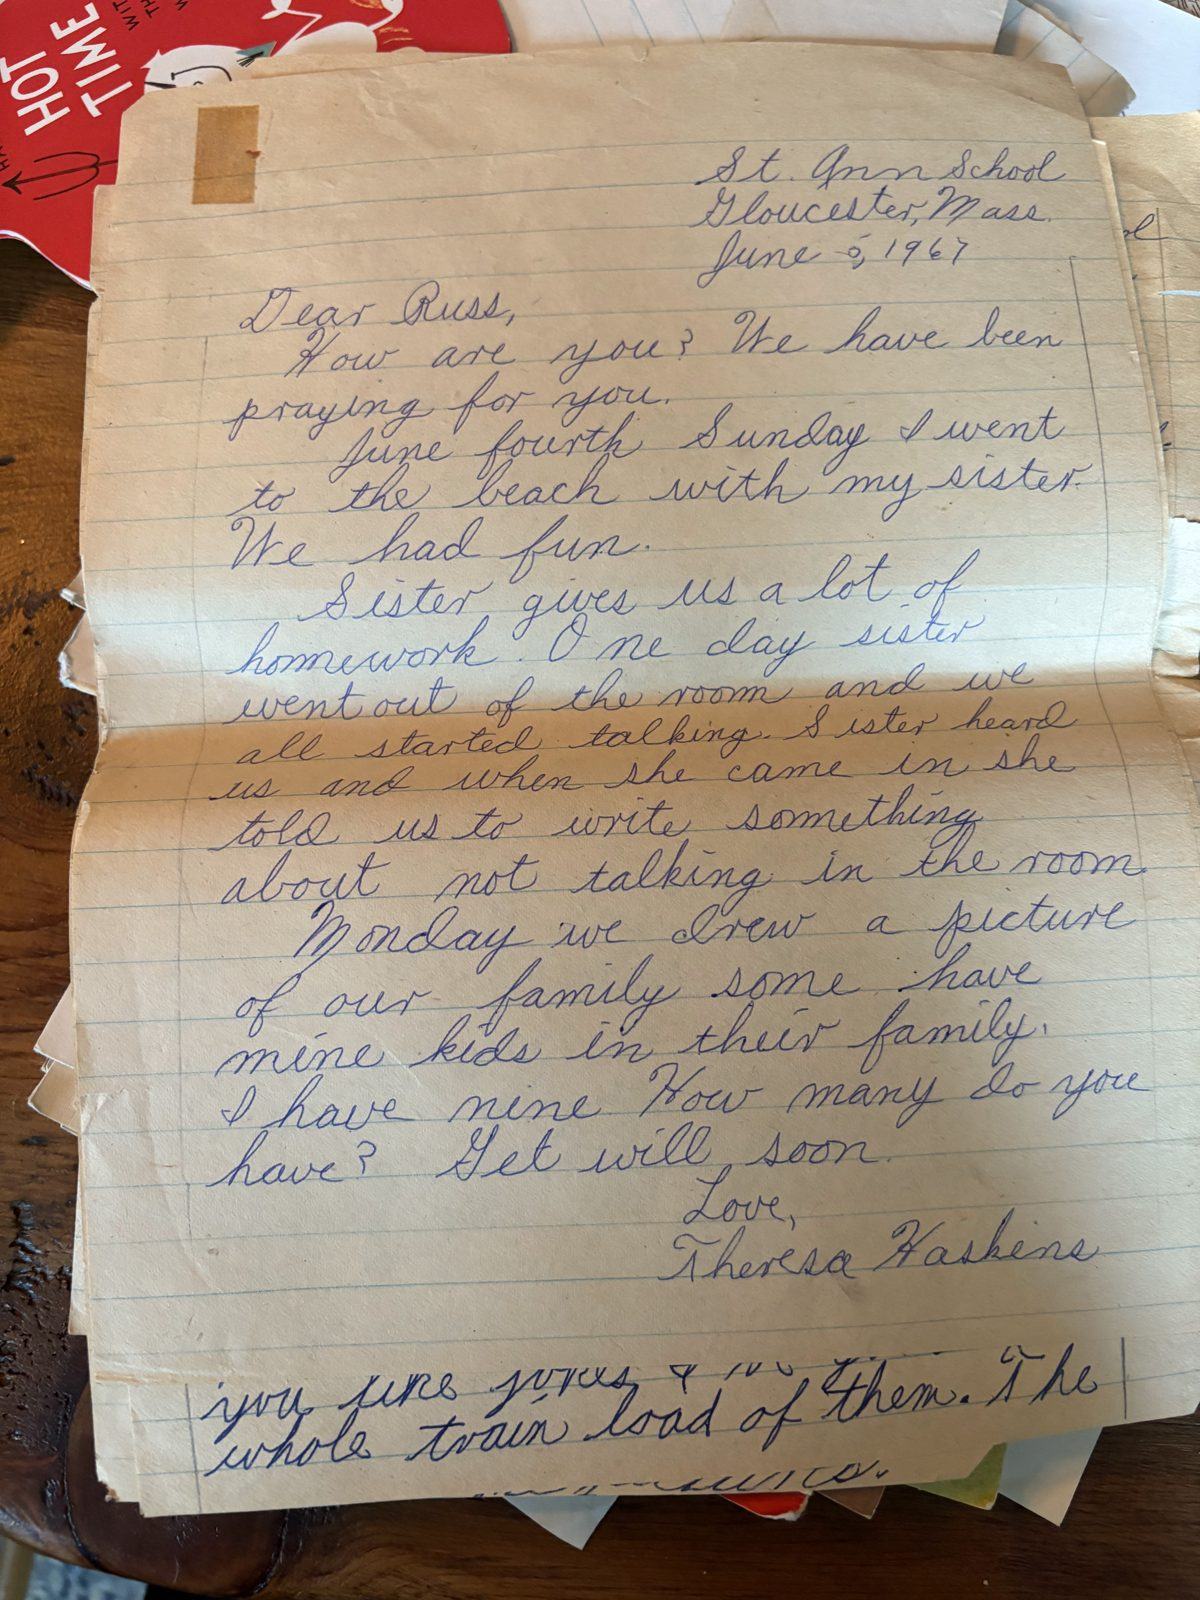 HOT
TIME
St. Ann School
Gloucester, Mass.
June 5, 1967
Dear Russ,
How are you? We have been
praying for you.
June fourth Sunday I went
to the beach with my sister.
We had fun.
Sister gives us a lot of
homework. One day sister
went out of the room and we
all started talking. Sister heard
us and when she came in she
told us to write something
about not talking in the room.
Monday we drew a picture
of our family some have
mine kids in their family.
I have nine How many do you
have? Get will soon.
Love,
Theresa Haskins
you like jokes
whole train load of them. The